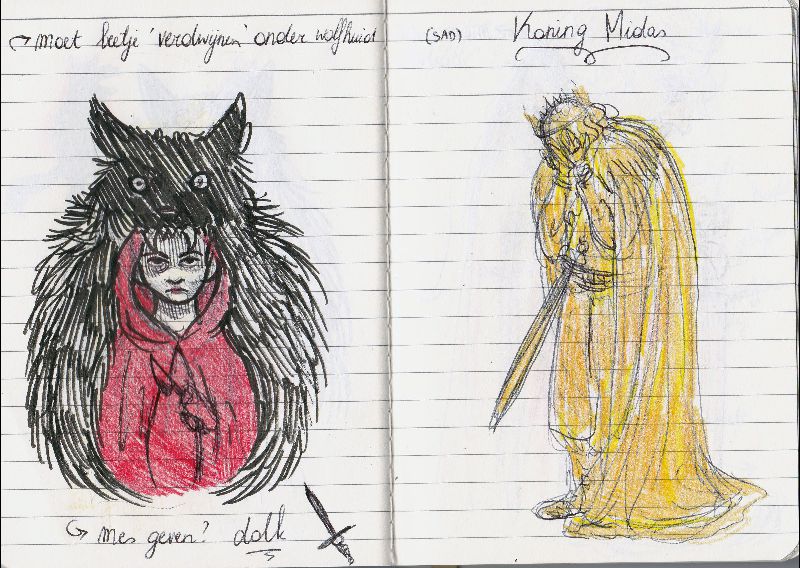 → moet beetje 'verdwijnen' onder wolfhuid
↪ mes geven? dolk
(SAD) Koning Midas